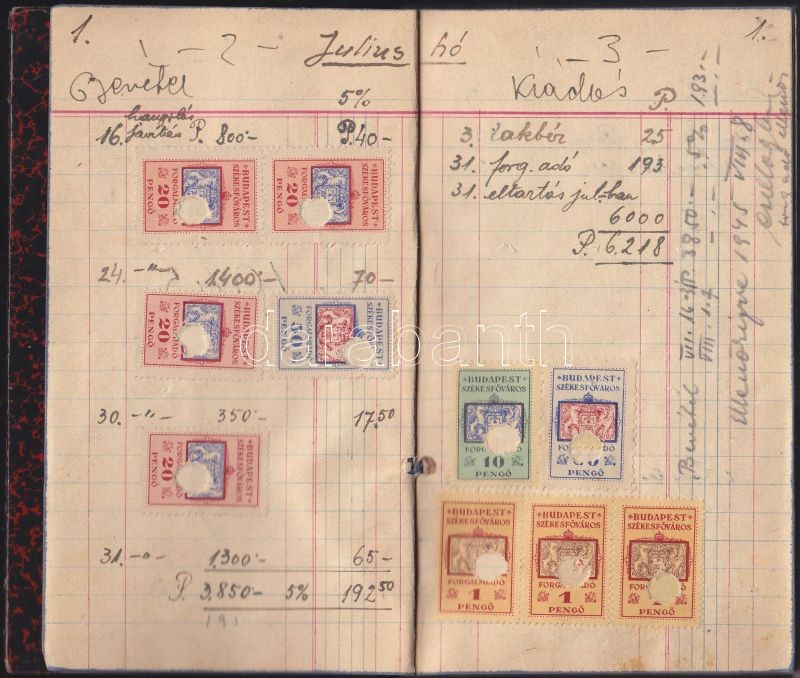 1.
- 2 -
Julius
Bevétel
5%
hangolás
16. javítás P. 800.- P. 40.-
BUDAPEST SZÉKESFŐVÁROS FORGALMIADÓ 20 PENGŐ
BUDAPEST SZÉKESFŐVÁROS FORGALMIADÓ 20 PENGŐ
24. -"- 1400.- 70.-
BUDAPEST SZÉKESFŐVÁROS FORGALMIADÓ 20 PENGŐ
BUDAPEST SZÉKESFŐVÁROS FORGALMIADÓ 50 PENGŐ
30. -"- 350.- 17.50
BUDAPEST SZÉKESFŐVÁROS FORGALMIADÓ 20 PENGŐ
31. -"- 1300.- 65.-
P. 3.850.- 5% 192.50
191
hó
- 3 -
1.
Kiadás
P.
3. Lakbér 25
31. forg. adó 193
31. eltartás jul.ban
6000
P. 6.218
BUDAPEST SZÉKESFŐVÁROS 10 PENGŐ
BUDAPEST SZÉKESFŐVÁROS PENGŐ
BUDAPEST SZÉKESFŐVÁROS FORGALMIADÓ 1 PENGŐ
BUDAPEST SZÉKESFŐVÁROS FORGALMIADÓ 1 PENGŐ
BUDAPEST SZÉKESFŐVÁROS 1 PENGŐ
Bevétel VII. 16 P 3850.- 5% 193.-
VIII. 1-7
Ellenőrizve 1945 VIII. 8
darabanth